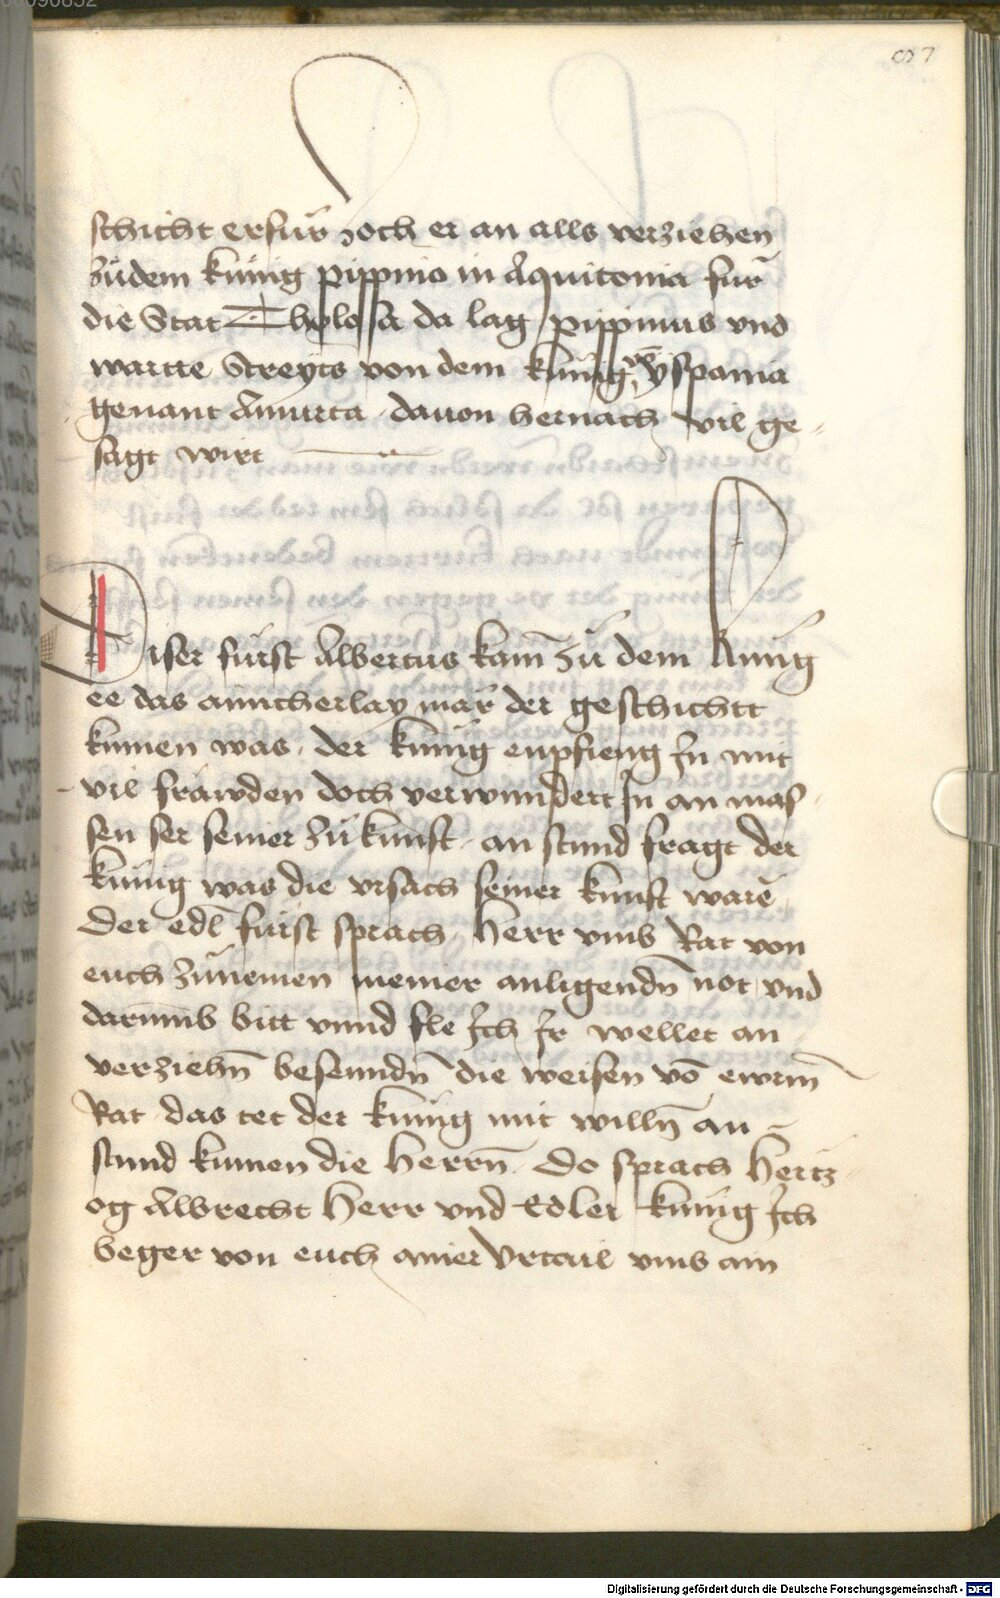 87
schicht erfur zoch er an alls verziehen
zudem kunig pippino in Aquitonia fur
die Stat Tholossa da lag pippinus vnd
wartte Streyts von dem kunig yspania
genant Amurta dauon hernach vil ge-
sagt wirt
Diser fürst Albertus kam zu dem kunig
ee das ainicherlay mär der geschichtt
kumen was der kunig enpfieng In mit
vil fräwden doch verwundert In an mas-
sen ser seiner zukunft an stund fragt der
kunig was die vrsach seiner kunft warē
Der edl fürst sprach Herr vmb Rat von
euch zunemen meiner anligendn̄ not vnd
darumb bitt vnnd fle Ich Ir wellet an
verziehn̄ besenndn̄ die weisen vō ewrm̄
Rat das tet der kunig mit willn̄ an-
stund kumen die herrn̄ Do sprach Hertz
og Albrecht Herr vnd Edler kunig Ich
beger von euch ainer Vrtail vmb ain
Digitalisierung gefördert durch die Deutsche Forschungsgemeinschaft - DFG